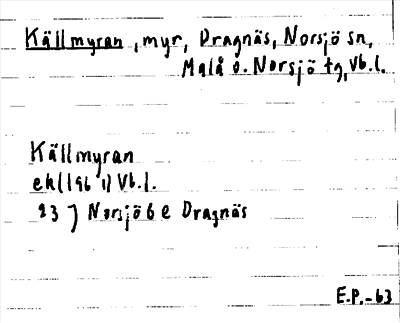 Källmyran, myr, Dragnäs, Norsjö sn,
Malå o. Norsjö tg, Vb.l.
Källmyran
ek (1961) Vb.l.
23 J Norsjö 6 e Dragnäs
E.P.-63